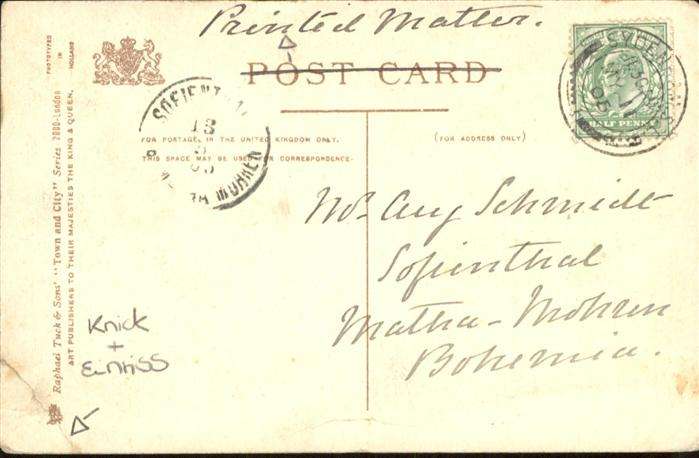 Printed Matter.
POST CARD
PHOTOTYPED
IN
HOLLAND
FOR POSTAGE IN THE UNITED KINGDOM ONLY.
THIS SPACE MAY BE USED FOR CORRESPONDENCE.
(FOR ADDRESS ONLY)
HALF PENNY
SOFIENT
13
05
MÄHREN
SYDEN
05
Aug Schmidt
Sofienthal
Matha - Mohren
Bohemia.
Raphael Tuck & Sons' "Town and City" Series 2000-London
ART PUBLISHERS TO THEIR MAJESTIES THE KING & QUEEN.
Knick
+
Einriss